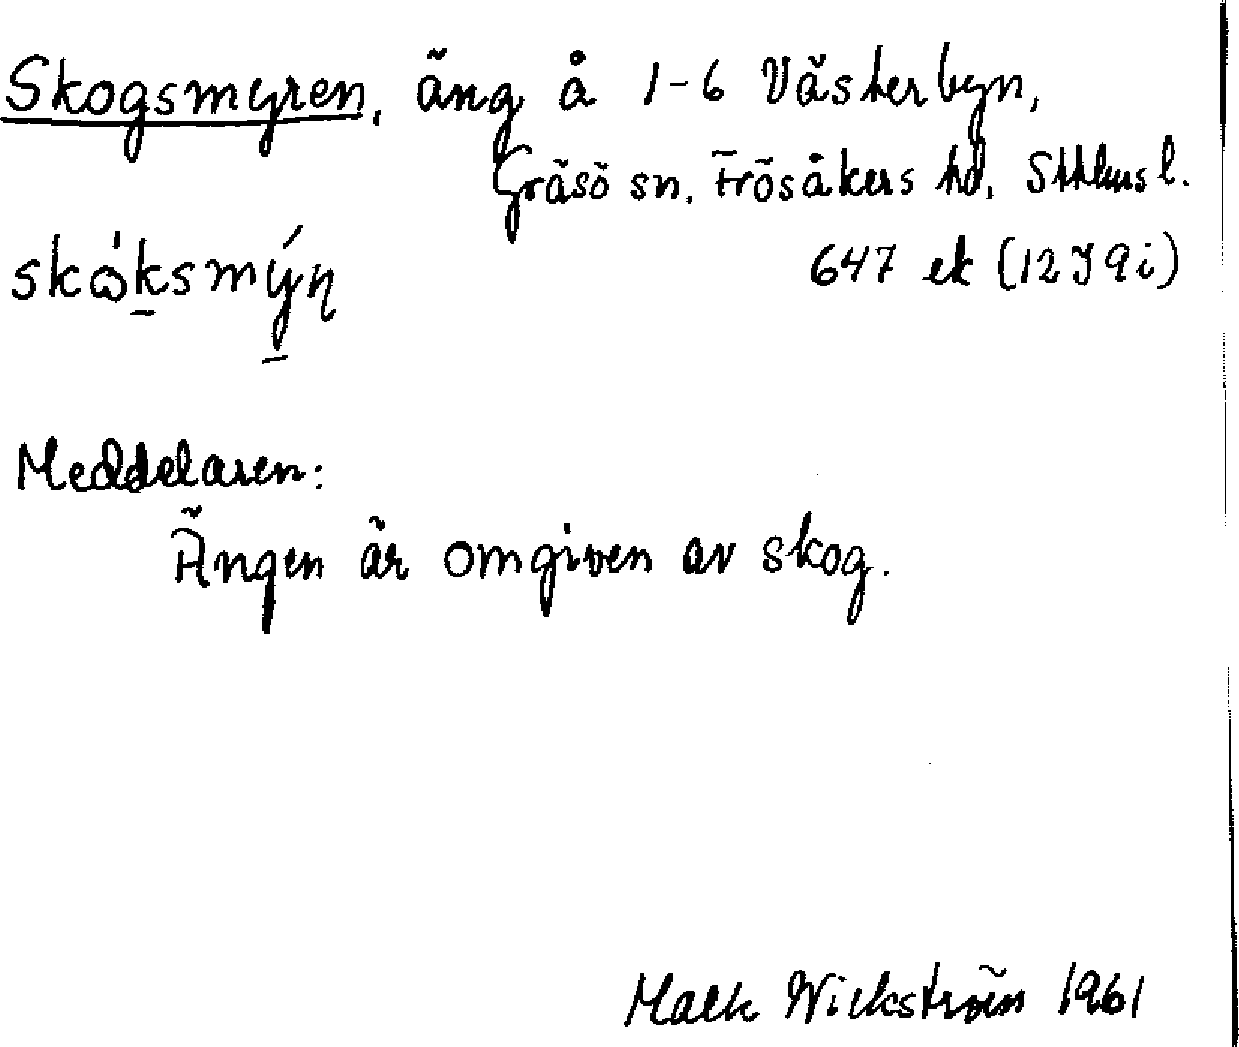 Skogsmyren, äng å 1-6 Västerbyn,
Gräsö sn, Frösåkers hd, Sthlms l.
647 ek (12 I 9 i)
Meddelaren:
Ängen är omgiven av skog.
Wickström 1961